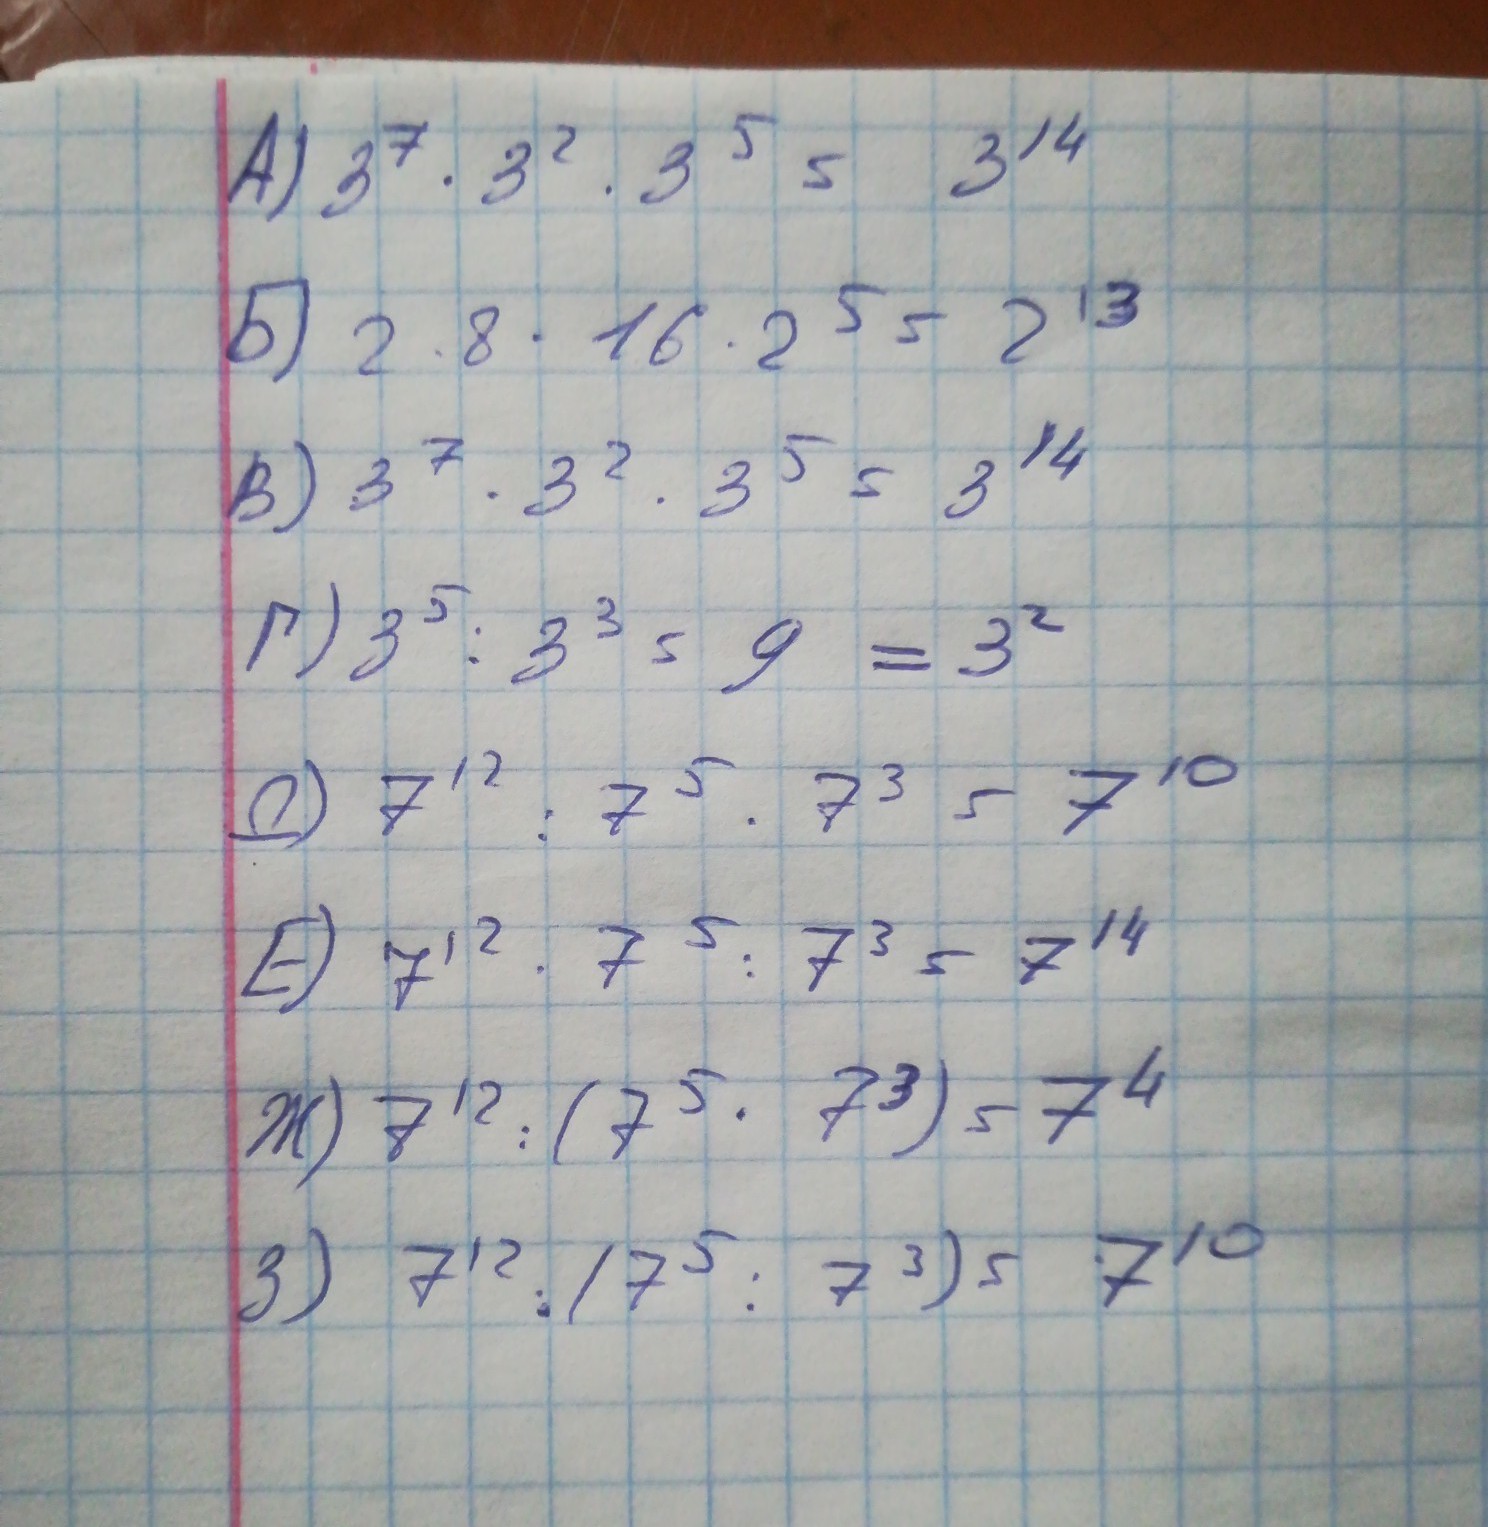 А) 3⁷ · 3² · 3⁵ = 3¹⁴
Б) 2 · 8 · 16 · 2⁵ = 2¹³
В) 3⁷ · 3² · 3⁵ = 3¹⁴
Г) 3⁵ : 3³ = 9 = 3²
Д) 7¹² : 7⁵ · 7³ = 7¹⁰
Е) 7¹² · 7⁵ : 7³ = 7¹⁴
Ж) 7¹² : (7⁵ · 7³) = 7⁴
З) 7¹² : (7⁵ : 7³) = 7¹⁰